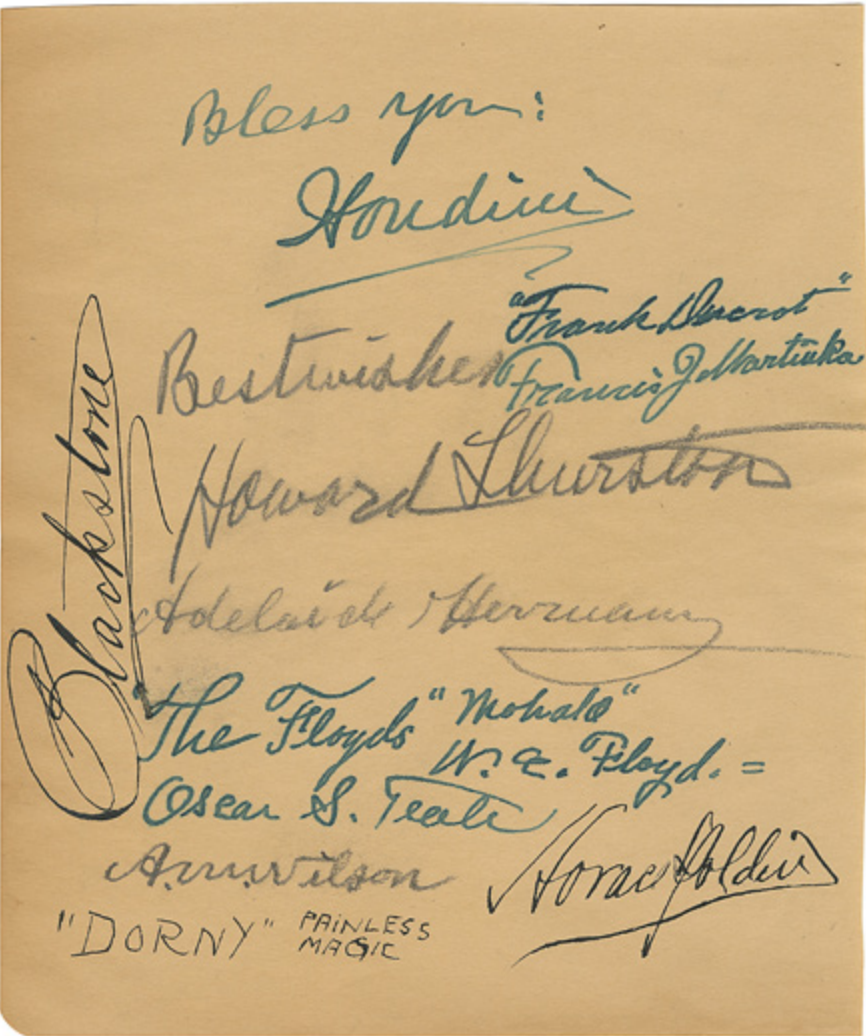 Bless you:
Houdini
"Frank Ducrot"
Francis J. Martinka
Best wishes
Howard Thurston
Blackstone
Adelaide Herrmann
"The Floyds" "Mohala"
W. E. Floyd. =
Oscar S. Teale
A. M. Wilson
Horace Goldin
"DORNY" PAINLESS
MAGIC